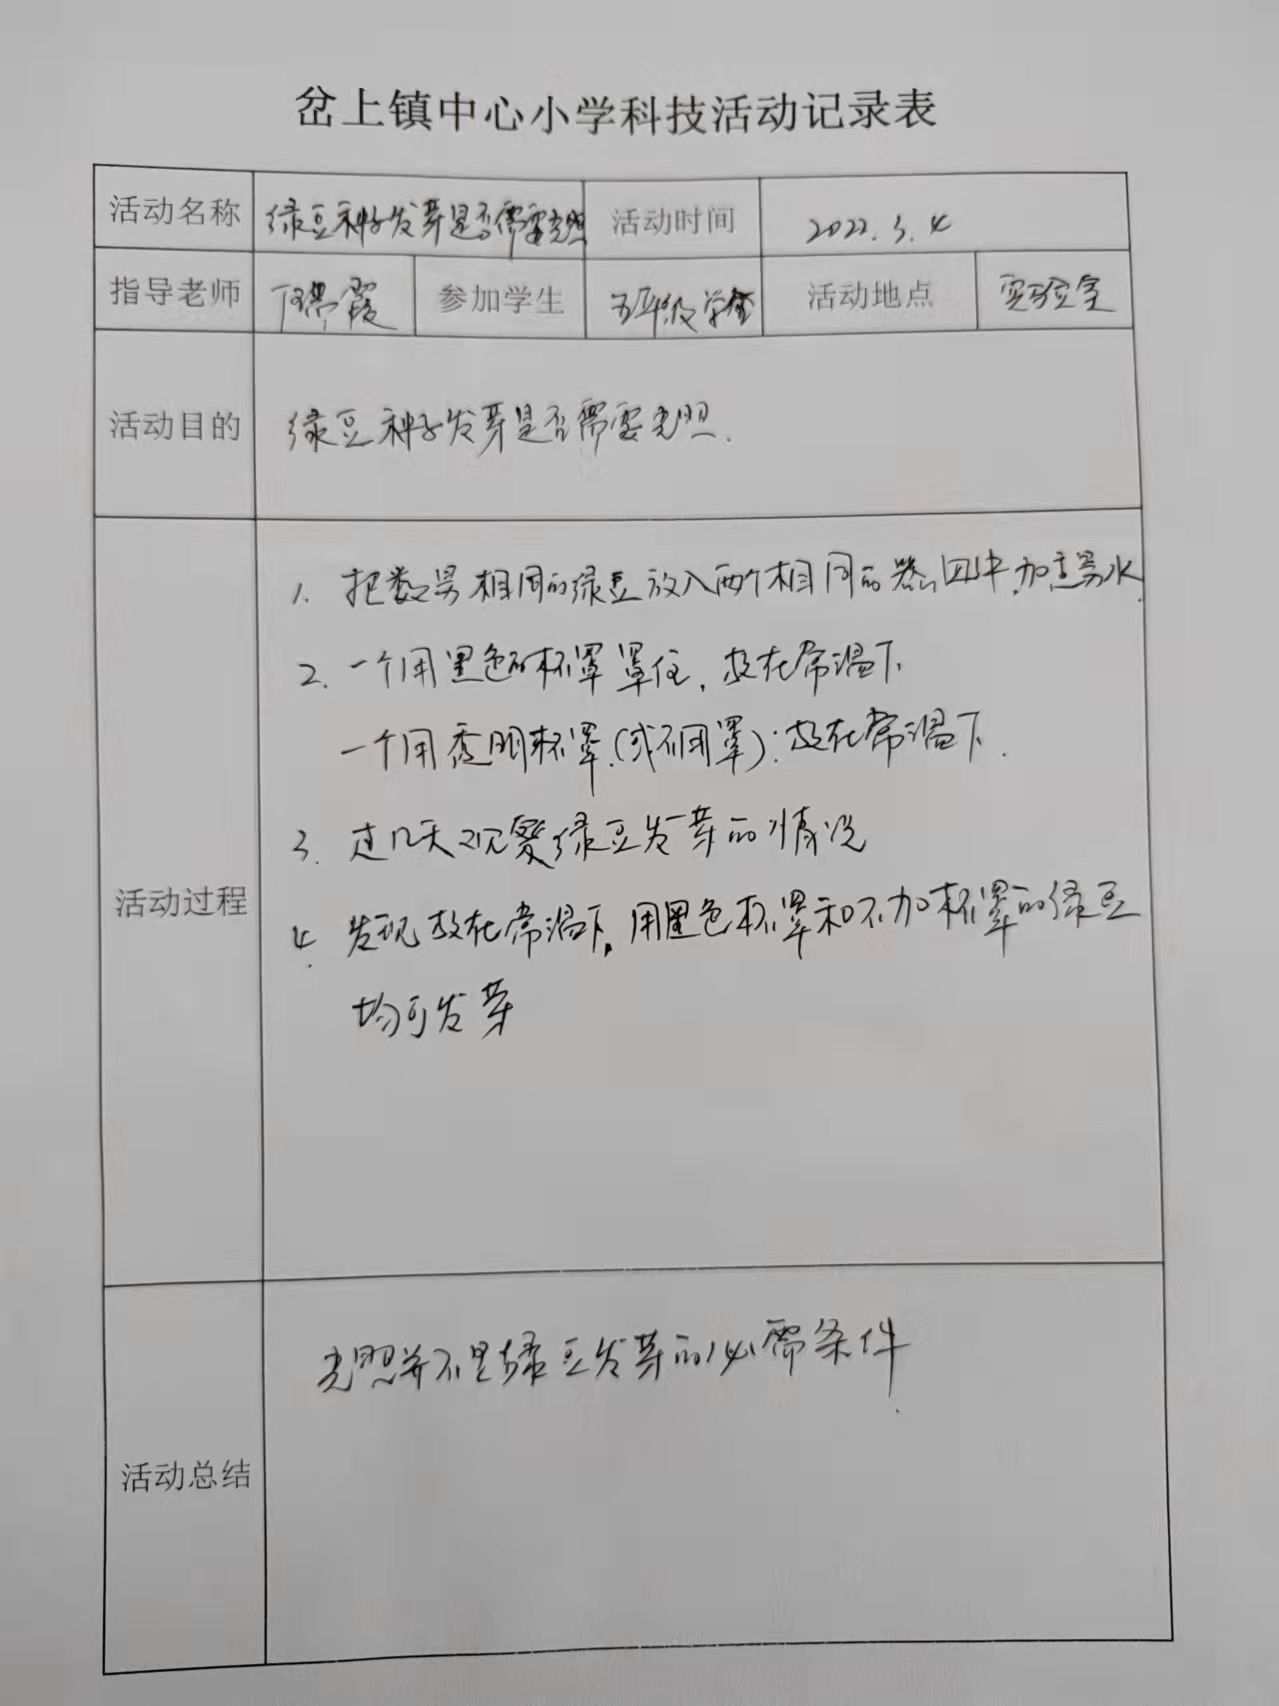 岔上镇中心小学科技活动记录表
活动名称 绿豆种子发芽是否需要光照 活动时间 2022.3.4
指导老师 霞 参加学生 五年级学生 活动地点 实验室
活动目的 绿豆种子发芽是否需要光照.
1. 把数量相同的绿豆放入两个相同的器皿中,加适量水.
2. 一个用黑色的杯罩罩住,放在常温下
一个用透明杯罩.(或不用罩):放在常温下.
3. 过几天观察绿豆发芽的情况
活动过程
4. 发现放在常温下,用黑色杯罩和不加杯罩的绿豆
均可发芽
光照并不是绿豆发芽的必需条件.
活动总结